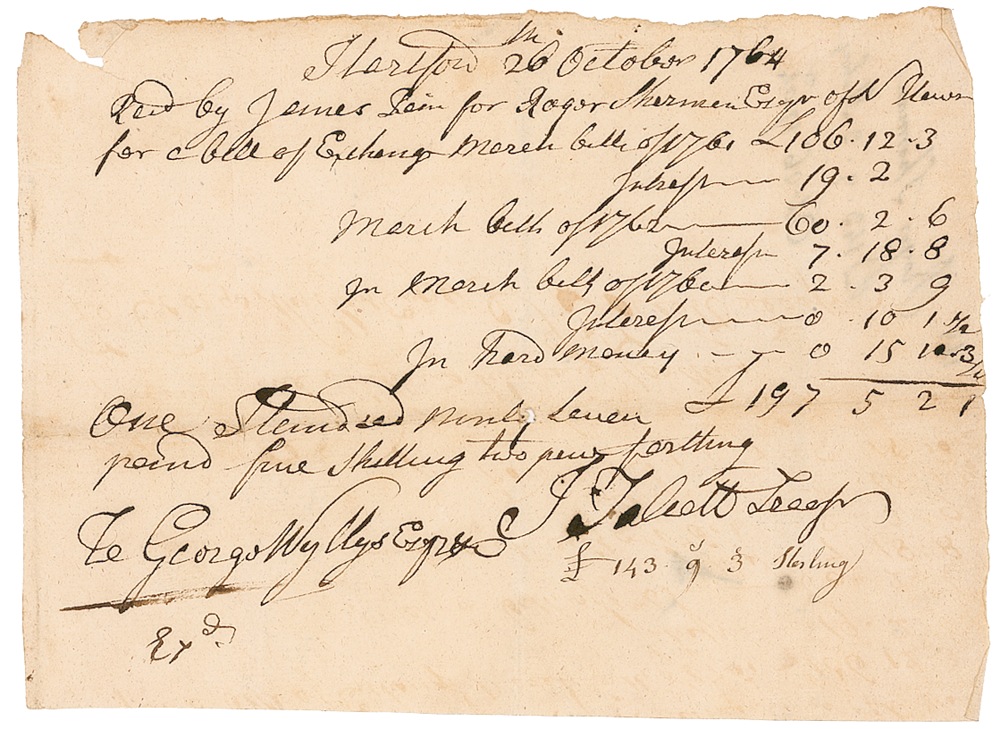 Hartford 26th October 1764
Recd by James Lain for Roger Sherman Esqr of N Haven
for a bill of Exchang March bills of 1761 £106 . 12 . 3
Interest 19 . 2
March bills of 1762 60 . 2 . 6
Interest 7 . 18 . 8
In March bills of 1760 2 . 3 9
Interest 0 . 10 1 1/2
In hard money 0 15 10 3/4
£ 197 5 2 1
One Hundred Ninty Seven
pound five Shilling two penc farthing
J Talcott Treasr
To George Wyllys Esqr Secr
£ 143 . 9 3 Sterling
Exd